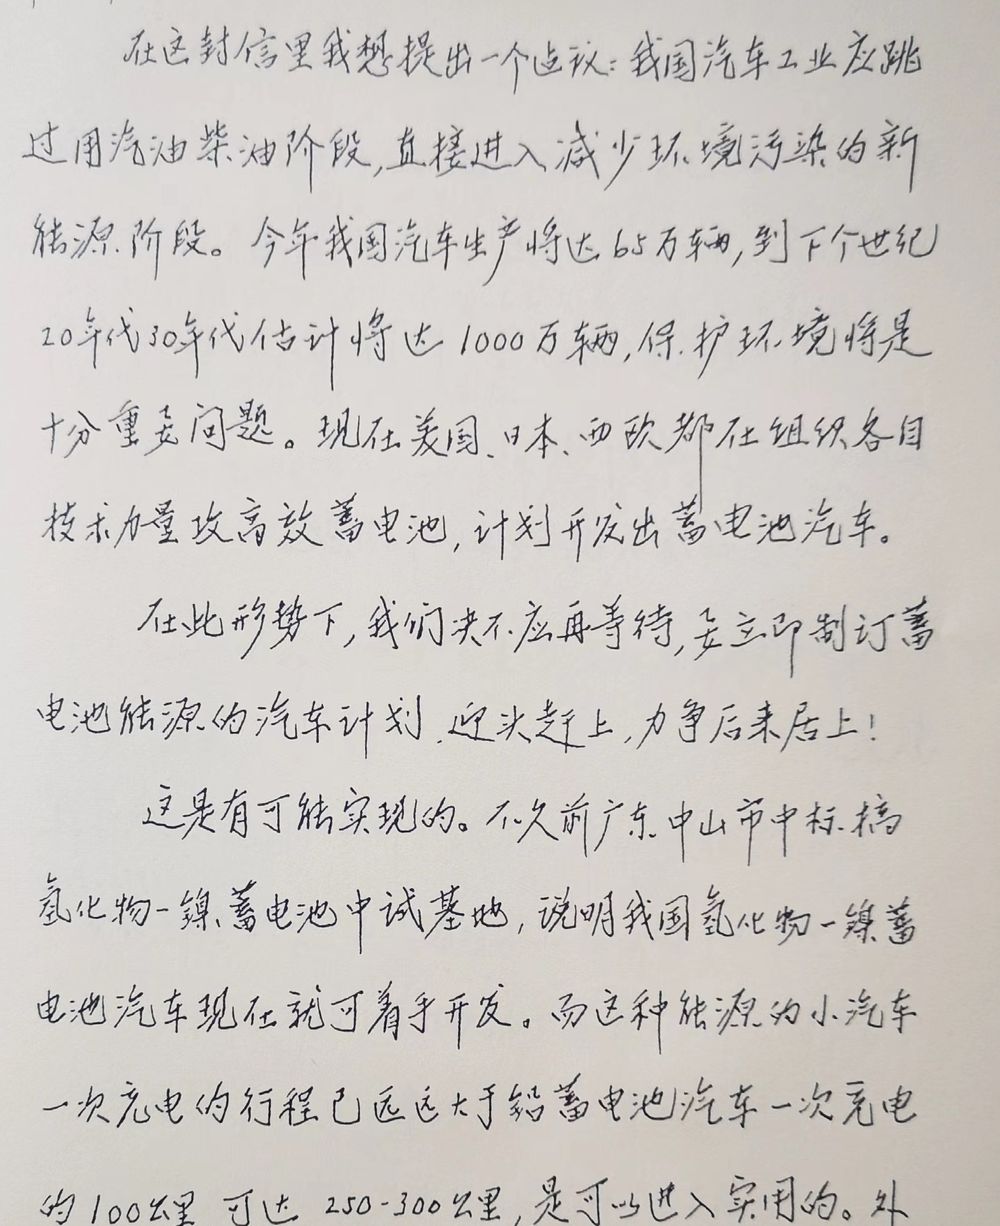 在这封信里我想提出一个建议：我国汽车工业应跳
过用汽油柴油阶段,直接进入减少环境污染的新
能源阶段。今年我国汽车生产将达65万辆,到下个世纪
20年代30年代估计将达1000万辆,保护环境将是
十分重要问题。现在美国、日本、西欧都在组织各自
技术力量攻高效蓄电池,计划开发出蓄电池汽车。
在此形势下,我们决不应再等待,要立即制订蓄
电池能源的汽车计划,迎头赶上,力争后来居上!
这是有可能实现的。不久前广东中山市中标搞
氢化物-镍蓄电池中试基地,说明我国氢化物-镍蓄
电池汽车现在就可着手开发。而这种能源的小汽车
一次充电的行程已远远大于铅蓄电池汽车一次充电
的100公里可达250-300公里,是可以进入实用的。外